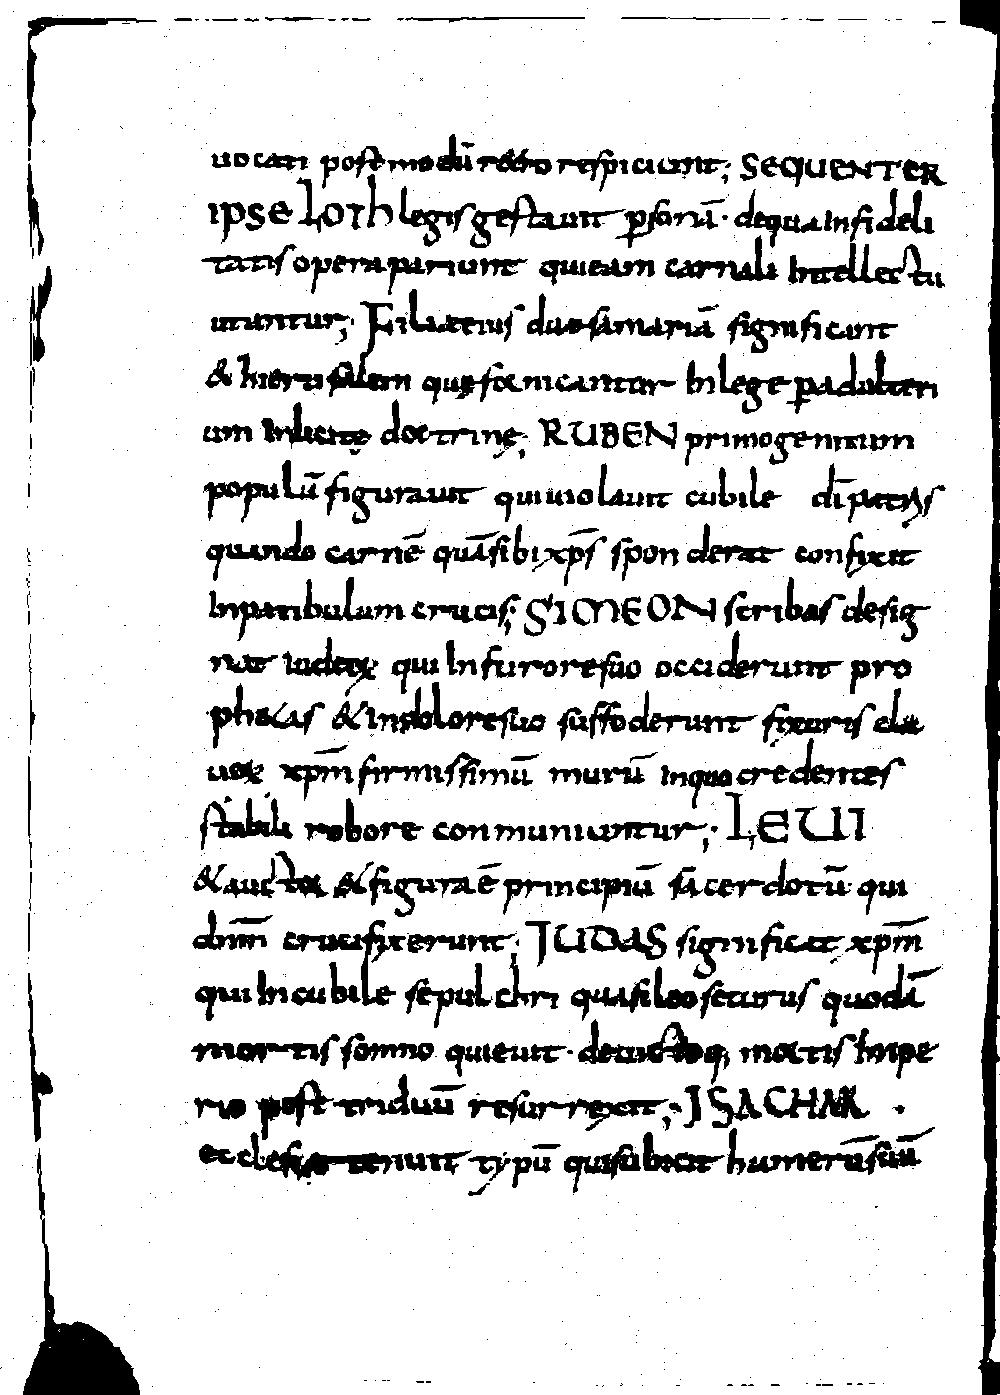 uocati postmodū retro respiciunt; SEQUENTER
ipse Loth legis gestauit psonā · de qua infideli
tatis opera pariunt qui eam carnali intellectu
utuntur; Filiae eius duae samariā significant
& hierusalem quę fornicantur in lege p adulteri
um inlicitę doctrinę; RUBEN primogenitum
populū figurauit qui uiolauit cubile dī patris
quando carnē quā sibi xp̄s sponderat confixit
in patibulum crucis; SIMEON scribas desig
nat iudeoꝝ qui in furore suo occiderunt pro
phetas & in dolore suo suffoderunt fixuris cla
uoꝝ xpm̄ firmissimū murū in quo credentes
stabili robore conmuniuntur; LEUI
& figura ē principiū sacerdotū qui
dnm̄ crucifixerunt; JUDAS significat xpm̄
qui in cubile sepulchri quasi leo securus quodā
mortis somno quieuit · deuictoq; mortis impe
rio post triduū resurrexit; JSACHAR ·
ecclesiae tenuit typū qui subiecit humerū suū